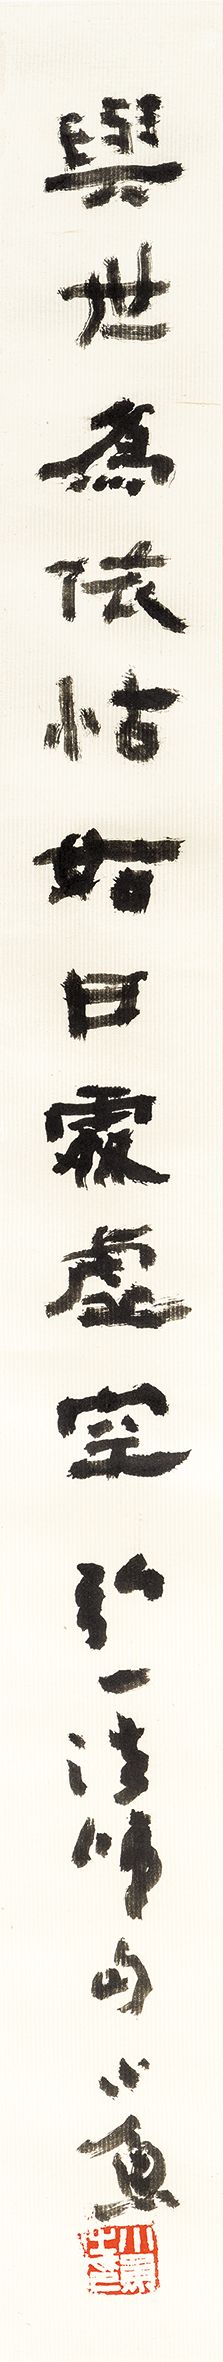 與世為依怙如日處虛空 弘一法師句 小魚